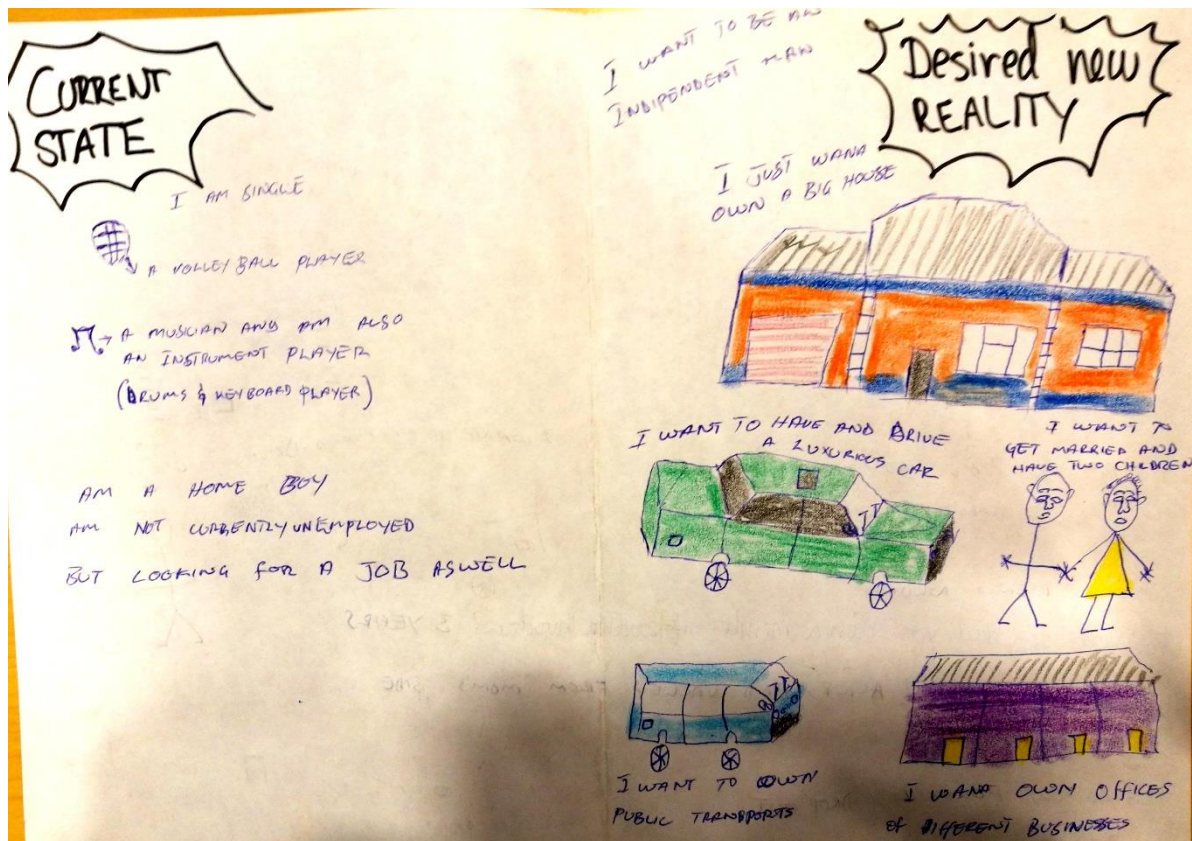 CURRENT
STATE
I AM SINGLE
A VOLLEY BALL PLAYER
A MUSICIAN AND AM ALSO
AN INSTRUMENT PLAYER
(DRUMS & KEYBOARD PLAYER)
AM A HOME BOY
AM NOT CURRENTLY UNEMPLOYED
BUT LOOKING FOR A JOB ASWELL
I WANT TO BE AN
INDIPENDENT MAN
Desired new
REALITY
I JUST WANA
OWN A BIG HOUSE
I WANT TO HAVE AND DRIVE
A LUXURIOUS CAR
I WANT TO
GET MARRIED AND
HAVE TWO CHILDREN
3 YEARS
FROM MOM'S SIDE
I WANT TO OWN
PUBLIC TRANSPORTS
I WANA OWN OFFICES
OF DIFFERENT BUSINESSES